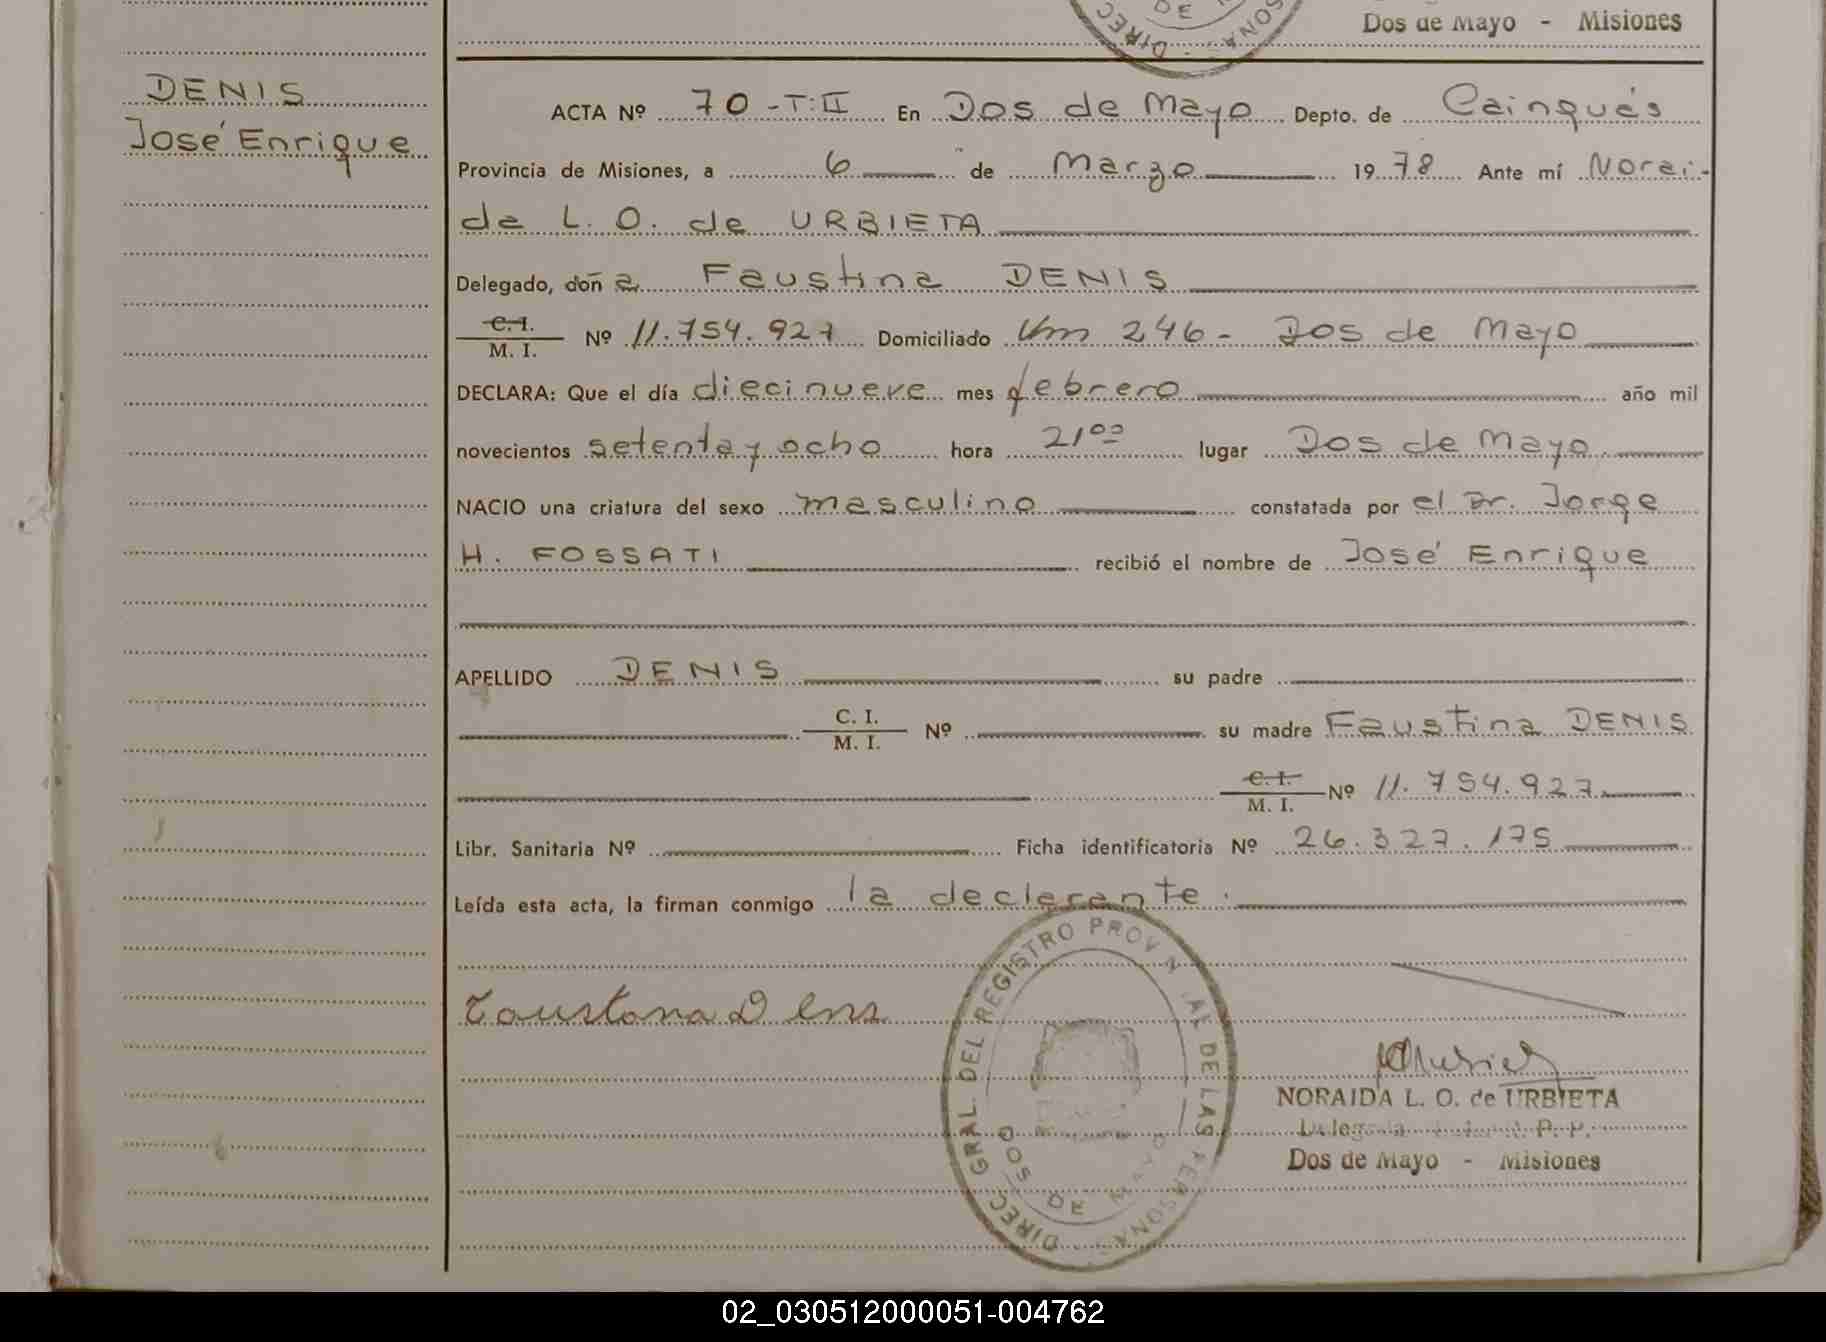 Dos de Mayo - Misiones
DENIS
José Enrique
ACTA Nº 70 - T: II En Dos de Mayo Depto. de Cainguás
Provincia de Misiones, a 6 de Marzo 1978 Ante mí Norai-
da L. O. de URBIETA
Delegado, doña Faustina DENIS
C. I. / M. I. Nº 11.754.927 Domiciliado Km 246 - Dos de Mayo
DECLARA: Que el día diecinueve mes febrero año mil
novecientos setenta y ocho hora 21⁰⁰ lugar Dos de Mayo
NACIO una criatura del sexo masculino constatada por el Dr. Jorge
H. FOSSATI recibió el nombre de José Enrique
APELLIDO DENIS su padre
C. I. / M. I. Nº su madre Faustina DENIS
C. I. / M. I. Nº 11.754.927
Libr. Sanitaria Nº Ficha identificatoria Nº 26.327.175
Leída esta acta, la firman conmigo la declarante.
DIREC. GRAL. DEL REGISTRO PROV DE LAS PERSONAS
DOS DE MAYO
NORAIDA L. O. de URBIETA
Delegada
Dos de Mayo - Misiones
02_030512000051-004762